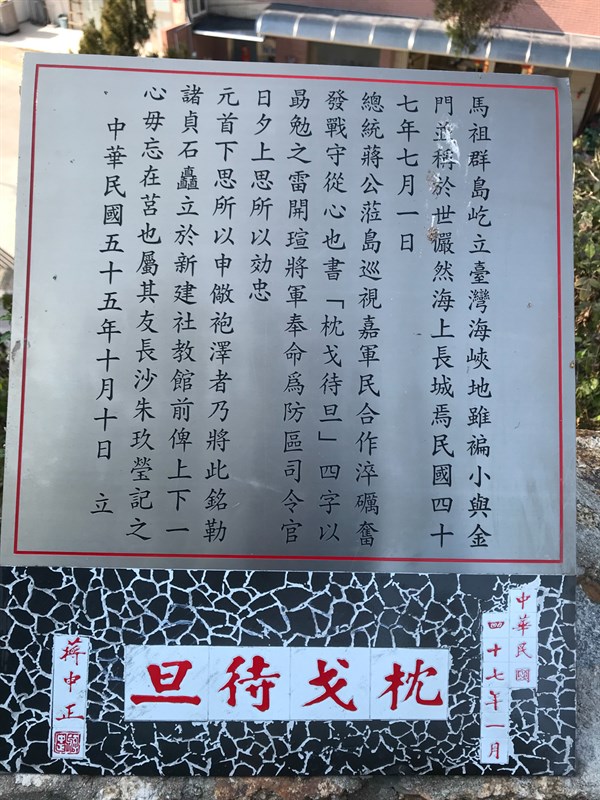 馬祖群島屹立臺灣海峽地雖褊小與金
門並稱於世儼然海上長城焉民國四十
七年七月一日
總統蔣公蒞島巡視嘉軍民合作淬礪奮
發戰守從心也書「枕戈待旦」四字以
勗勉之雷開瑄將軍奉命爲防區司令官
日夕上思所以効忠
元首下思所以申儆袍澤者乃將此銘勒
諸貞石矗立於新建社教館前俾上下一
心毋忘在莒也屬其友長沙朱玖瑩記之
中華民國五十五年十月十日 立
中華民國
四十七年一月
枕戈待旦
蔣中正